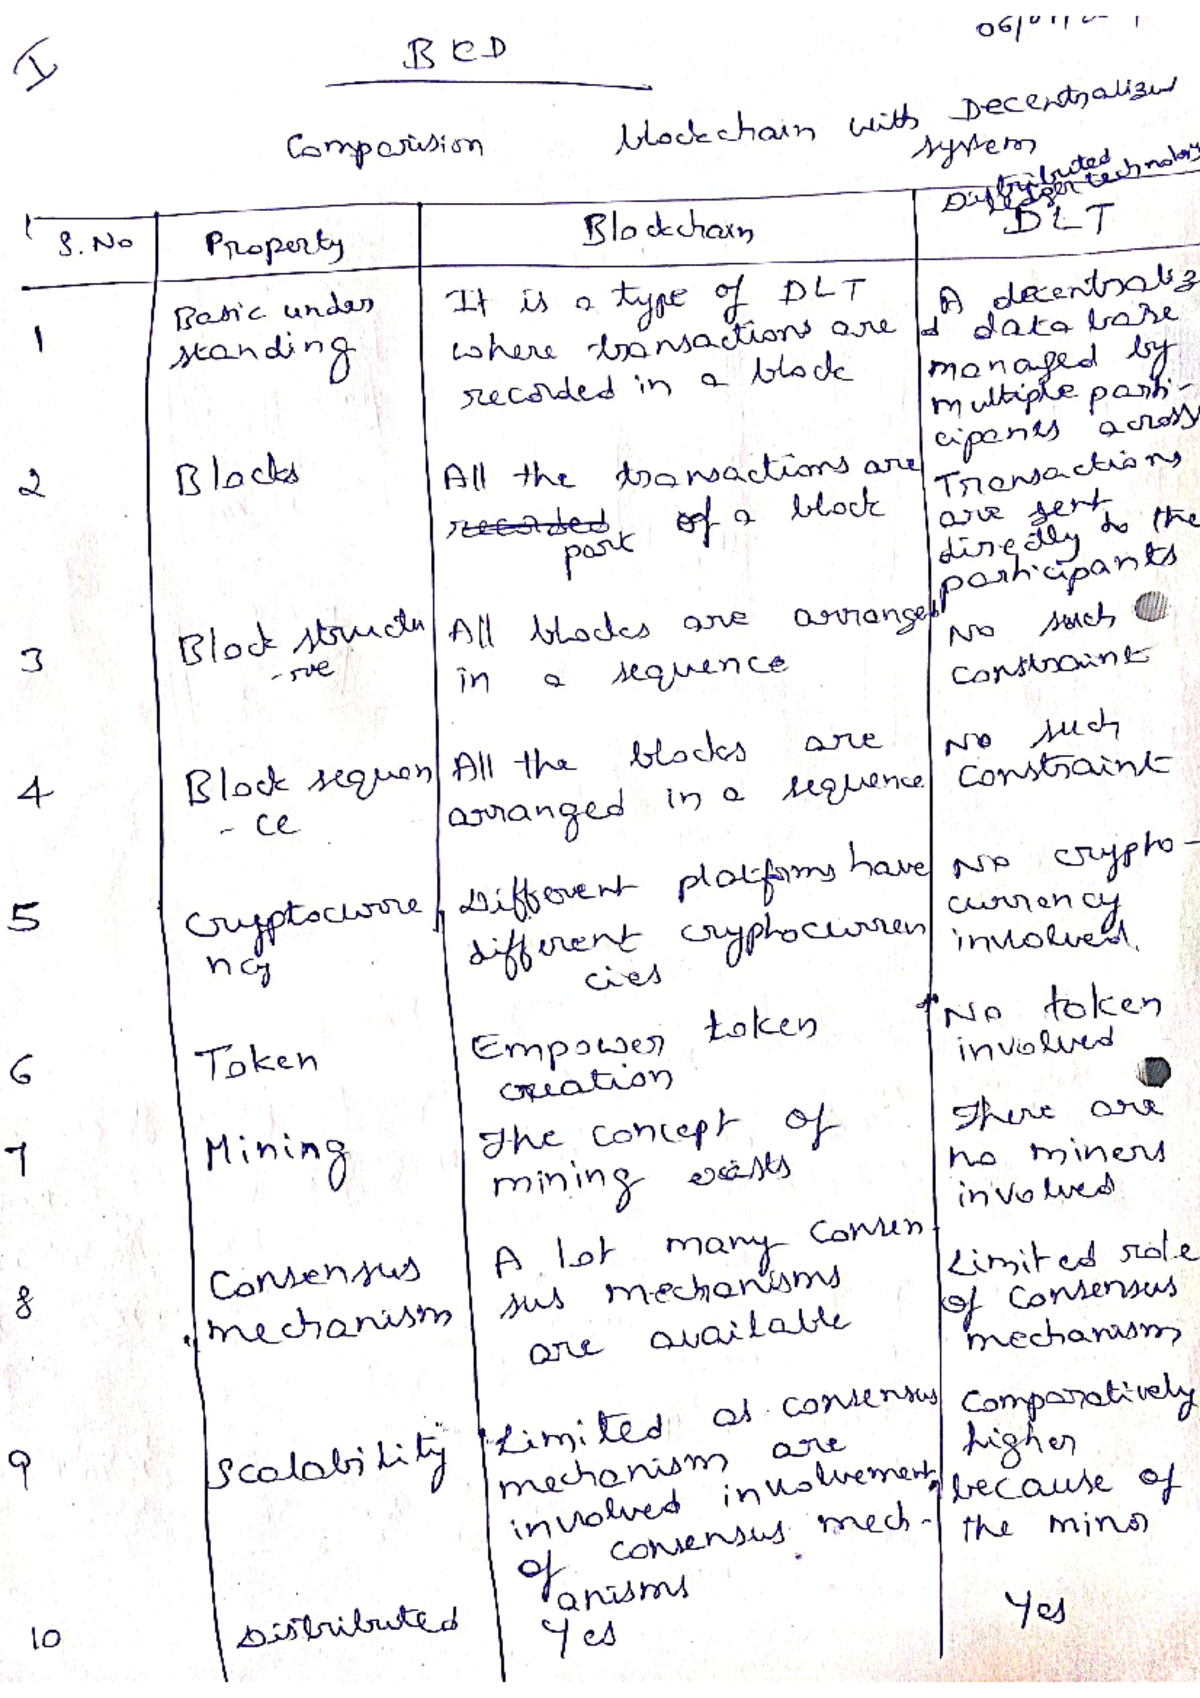 I
BCD
Comparision blockchain with Decentralized
system
Distributed
ledger technology
S.No Property Blockchain DLT
1 Basic under
standing
It is a type of DLT
where transactions are
recorded in a block
A decentraliz
d data base
managed by
multiple parti-
cipants across
2 Blocks
All the transactions are
recorded
part of a block
Transactions
are sent
directly to the
participants
3 Block structu
-re
All blocks are arranged
in a sequence
No such
constraint
4 Block sequen
- ce
All the blocks are
arranged in a sequence
No such
constraint
5 cryptocurre
ncy
Different platforms have
different cryptocurren
cies
No crypto-
currency
involved.
6 Token
Empower token
creation
No token
involved
7 Mining
The concept of
mining exists
There are
no miners
involved
8 Consensus
mechanism
A lot many consen
sus mechanisms
are available
Limited role
of consensus
mechanism
9 Scalability
Limited as consensus
mechanism are
involved involvement
of consensus mech-
anisms
Comparatively
higher
because of
the minor
10 Distributed Yes Yes